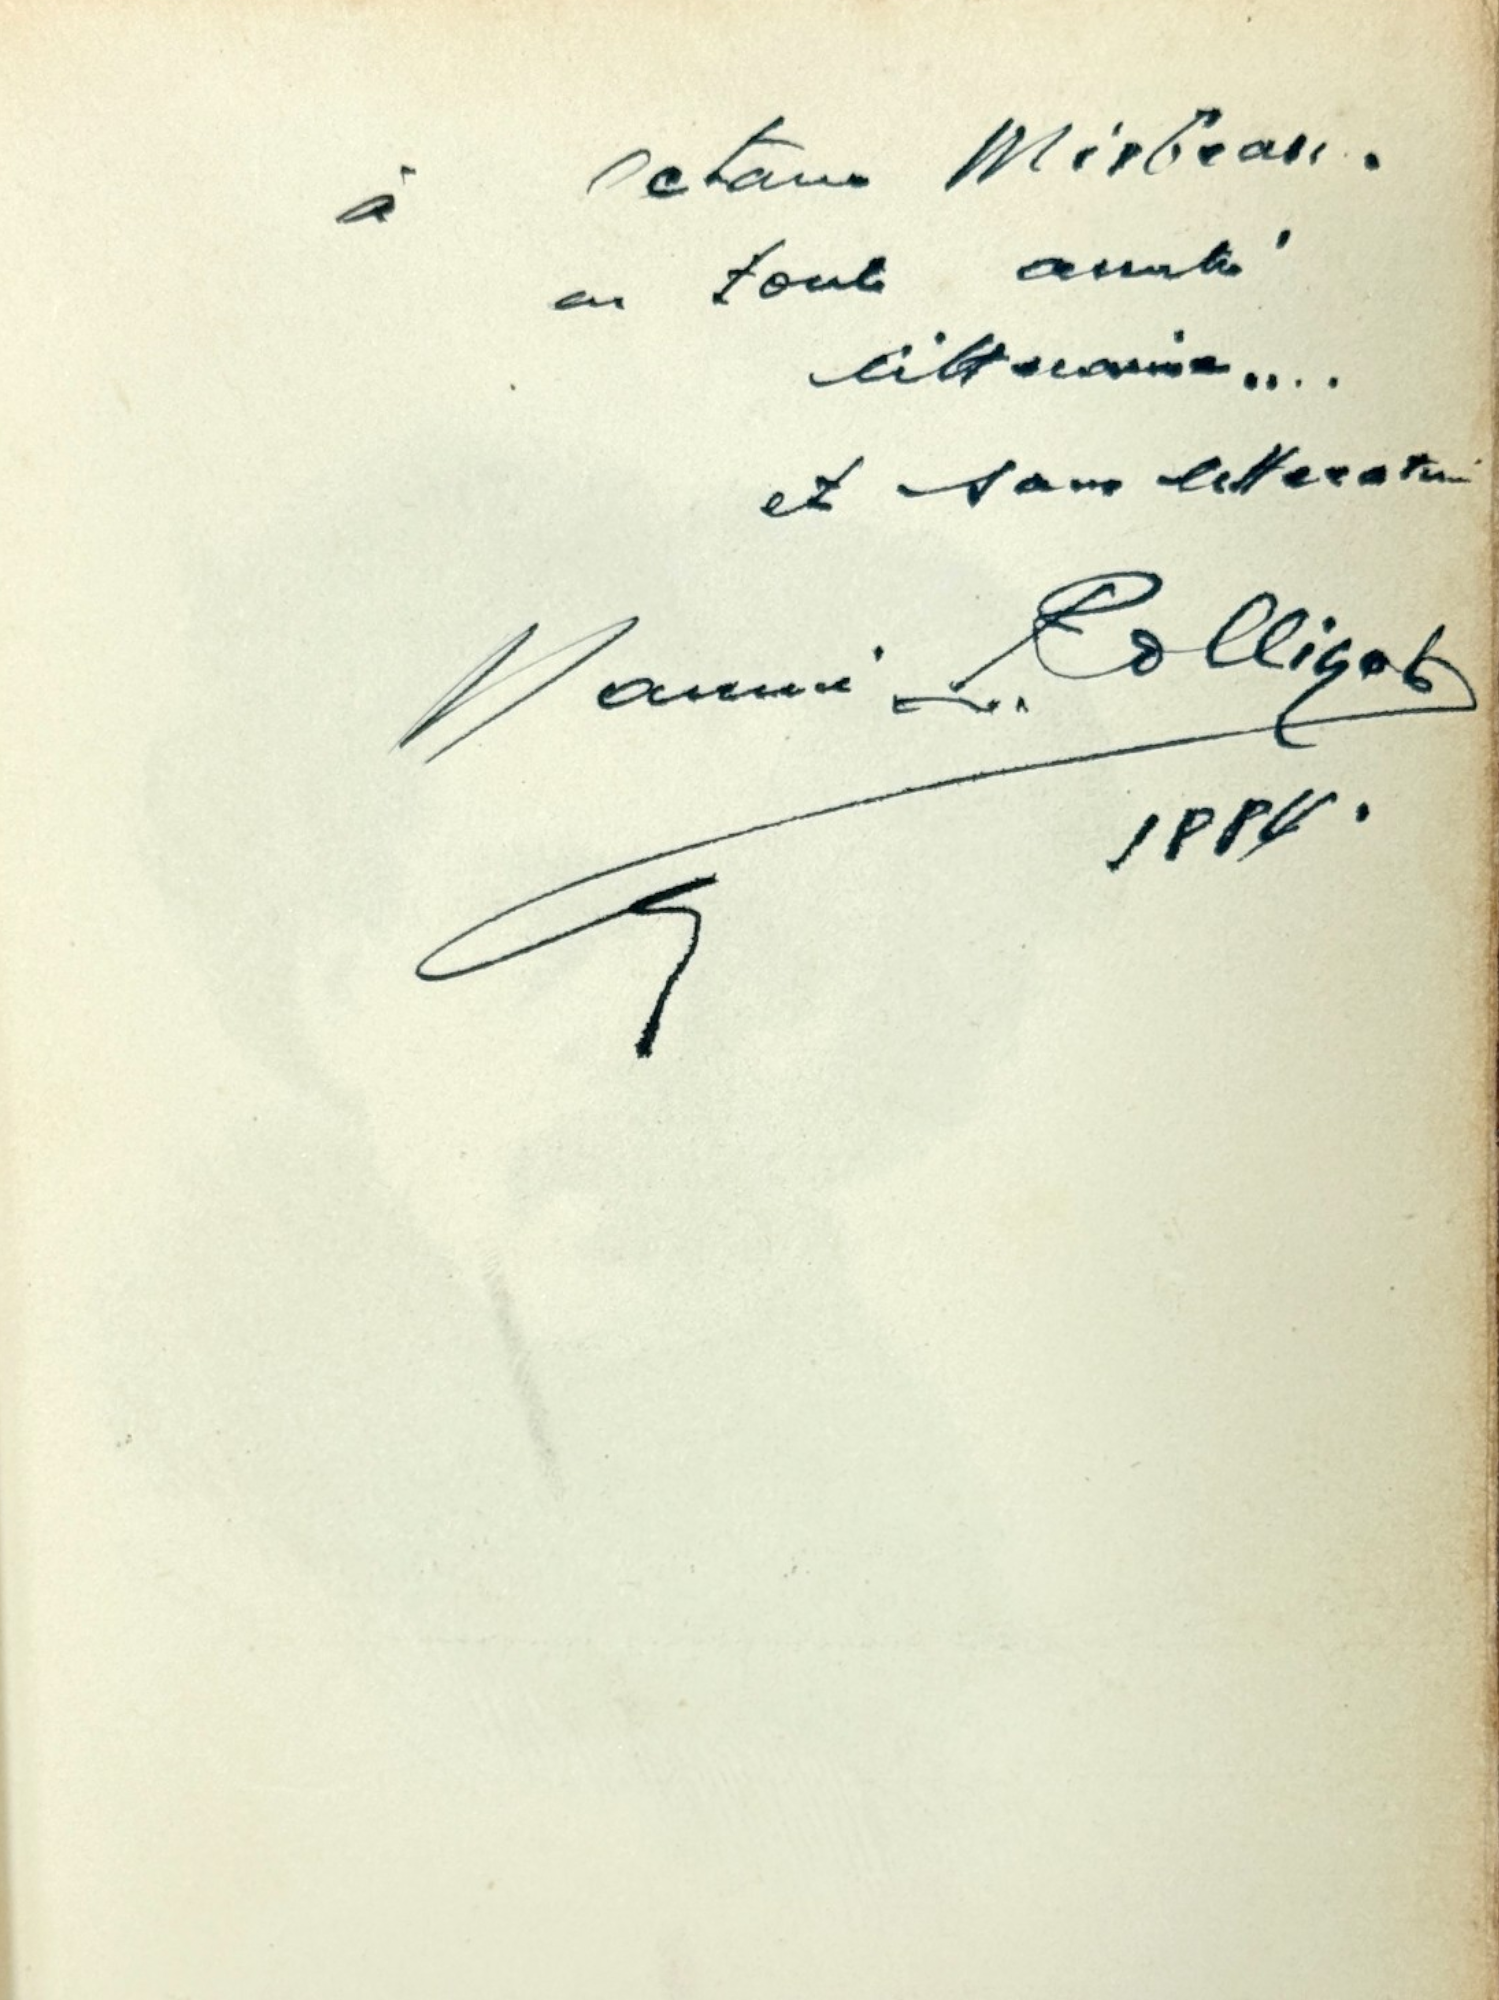 à Octave Mirbeau.
en toute amitié
littéraire....
et sans litterature
Maurice Rollinat
1884.